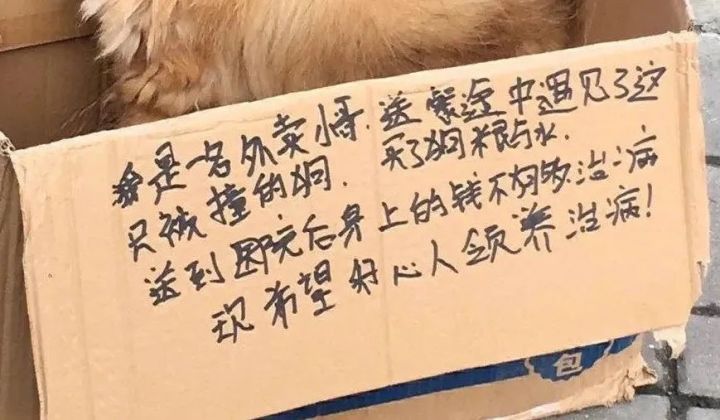 我是一名外卖小哥.送餐途中遇见了这
只被撞的狗.买了狗粮与水.
送到医院后身上的钱不够治病
现希望好心人领养治病!
包